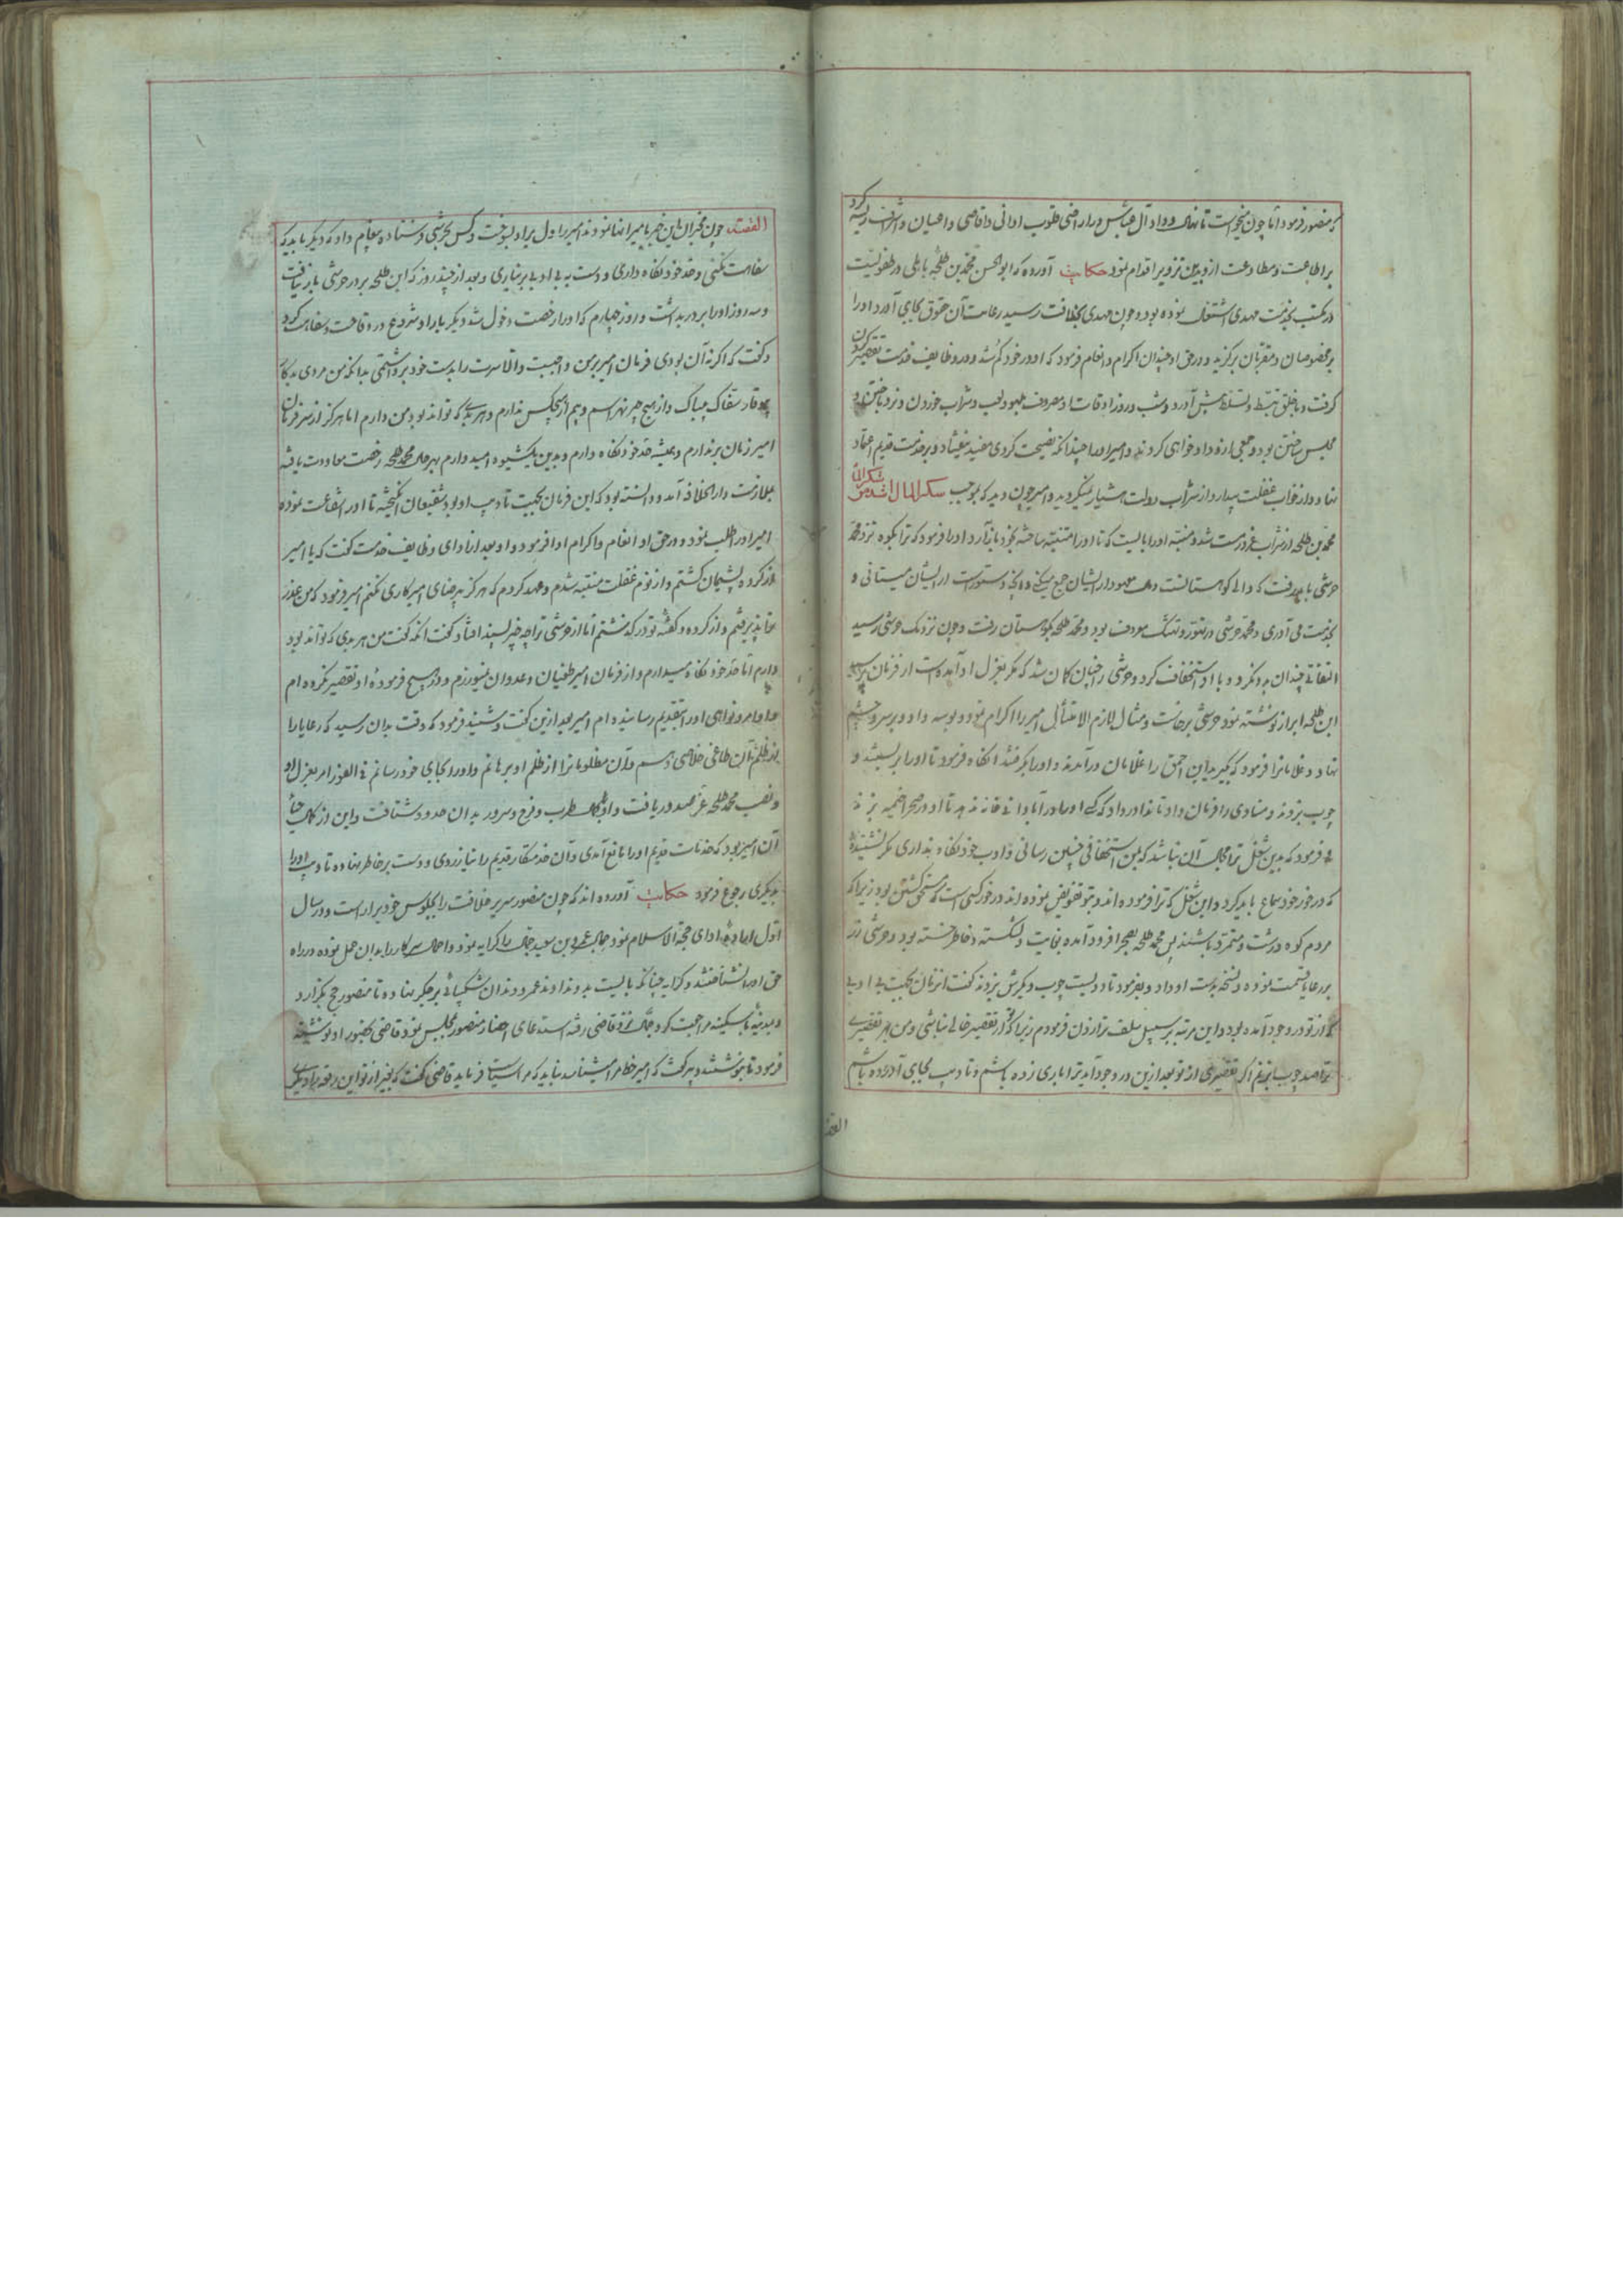 که منصور فرمود اما چون میخواست تا نهال وداد آل عباس در اراضی قلوب ادانی و اقاصی و اعیان و اشراف
بر اطاعت و مطاوعت ازو بدین تزویر اقدام نمود حکایت آورده که ابوالحسن محمد بن طلحه باهلی در طفولیت
در مکتب بخدمت مهدی اشتغال نموده بود و چون مهدی بخلافت رسید رعایت آن حقوق بجای آورد و او را
بر مخصوصان و مقربان برگزید و در حق او چندان اکرام و انعام فرمود که او در خود گم شد و در وظایف خدمت تقصیر کردن
گرفت و با خلق تبسط و تسلط پیش آورد و شب و روز اوقات او مصروف بلهو و لعب و شراب خوردن و نرد باختن و
مجلس ساختن بود و جمعی ازو دادخواهی کردند و امیر او را چندانکه نصیحت کردی مفید نیفتاد و بر خدمت قدیم اعتماد
نهاد و از خواب غفلت بیدار و از شراب دولت هشیار نمیگردید و امیر چون دید که بموجب سکر المال اشد من
محمد بن طلحه از شراب غرور مست شد و منتبه او را بایست که تا او را متنبه ساخته بخود باز آرد او را فرمود که ترا بکوه نزد محمد
حرشی باید رفت که والی کوهستانست و هر معهود از ایشان جمع میکند و آنچه دستورست از ایشان میستانی و
بخدمت می آوری و محمد حرشی در تهور و تهتک معروف بود و محمد طلحه بکوهستان رفت و چون نزدیک حرشی رسید
التفاتی چندان بدو نکرد و با او استخفاف کرد و حرشی را چنان گمان شد که مگر بعزل او آمده است از فرمان پرسید
ابن طلحه ابراز نوشته نمود حرشی برخاست و مثال لازم الامتثال امیر را اکرام نمود و بوسه داد و بر سر و چشم
نهاد و غلامانرا فرمود که بگیرید این احمق را غلامان درآمدند و او را بگرفتند آنگاه فرمود تا او را بر بستند و
چوب بزدند و منادی را فرمان داد تا ندا در داد که کسی او را در آبادانی خانه ندهد تا او در صحرا خیمه بزند
و فرمود که بدین شغل ترا مجال آن نباشد که بمن استخفافی چنین رسانی و ادب خود نگاه نداری مگر نشنیده
که در خور خود سماع باید کرد و این شغل که ترا فرموده اند و بتو تفویض نموده اند در خور کسی است که مستحق کشتن بود زیرا که
مردم کوه درشت و متمرد باشند پس محمد طلحه بصحرا فرود آمده بغایت دلشکسته و خاطر خسته بود و حرشی زر
بر رعایا قسمت نموده و نسخه بدست او داد و بفرمود تا دویست چوب دیگرش بزدند گفت آنزمان بجهت بی ادبی
که از تو در وجود آمده بود و این مرتبه بر سبیل سلف ترا زدن فرمودم زیرا که از تقصیر خالی نباشی و من بهر تقصیری
ترا صد چوب بزنم اگر تقصیری از تو بعد ازین در وجود آید ترا باری زده باشم و تادیب بجای آورده باشم
القصه
القصه چون مخبران این خبر بامیر انها نمودند امیر را دل برو بسوخت و کس بحرشی فرستاد و پیغام داد که دیگر باید که
سفاهت نکنی و حد خود نگاه داری و دست به بی ادبی برنیاری و بعد از چند روز که ابن طلحه بر در حرشی بار نیافت
و سه روز او را بر در بداشت و روز چهارم که او را رخصت دخول شد دیگر بار او شروع در وقاحت و سفاهت کرد
و گفت که اگر نه آن بودی فرمان امیر بر من واجبست والا سرت را بدست خود برداشتمی بدانکه من مردی بدکار
سفاک بیباک و از هیچ چیز نهراسم و بیم از هیچکس ندارم و هر بدی که تواند بود من دارم اما هرگز از سر فرمان
امیر زمان برندارم و همیشه حد خود نگاه دارم و بدین یک شیوه امیدوارم بهر حال محمد طلحه رخصت معاودت یافته
بملازمت دار الخلافه آمد و دانسته بود که این فرمان بجهت تادیب او بود شفیعان انگیخته تا او را شفاعت نموده
امیر او را طلب نمود و در حق او انعام و اکرام او افزمود و او بعد از ادای وظایف خدمت گفت که یا امیر
از کرده پشیمان گشتم و از نوم غفلت متنبه شدم و عهد کردم که هرگز بی رضای امیر کاری نکنم امیر فرمود که من عذر
ترا پذیرفتم و از کرده و گفته تو درگذشتم اما از حرشی ترا چه چیز پسند افتاد گفت آنکه گفت من هر بدی که تواند بود
دارم اما حد خود نگاه میدارم و از فرمان امیر طغیان و عدوان نمیورزم و در هیچ فرموده او تقصیر نکرده ام
و اوامر و نواهی او را بتقدیم رسانیده ام امیر بعد ازین گفت و شنید فرمود که وقت بدان رسید که رعایا را
از ظلم آن طاغی خلاصی دهم و آن مظلومانرا از ظلم او برهانم و او را بجای خود رسانم فی الفور امر بعزل او
و نصب محمد طلحه عز صدور یافت و او بکمال طرب و فرح و سرور بدان حدود شتافت و این از کمال حیای
آن امیر بود که خدمات قدیم او را مانع آمدی و آن خدمتکار قدیم را نیازردی و دست بر خاطر نهاده تادیب او را
بدیگری رجوع فرمود حکایت آورده اند که چون منصور سریر خلافت را بجلوس خود بیاراست و در سال
اول اراده ادای حجة الاسلام نمود جمال عمرو بن سعید جمال را کرایه نمود و احمال سرکار را بدان حمل نموده در راه
حق او را نشناختند و کرایه چنانکه بایست بدو ندادند عمرو دندان شکیبائی بر جگر نهاده تا منصور حج بگزارد
و بمدینه باسکینه مراجعت کرد و جمال نزد قاضی رفته استدعای احضار منصور بمجلس نمود قاضی بحضور او نوشته
فرمود تا بنوشتند دبیر گفت که امیر خط مرا میشناسد نباید که مرا سیاست فرماید قاضی گفت که بغیر از تو این رقعه را دیگری